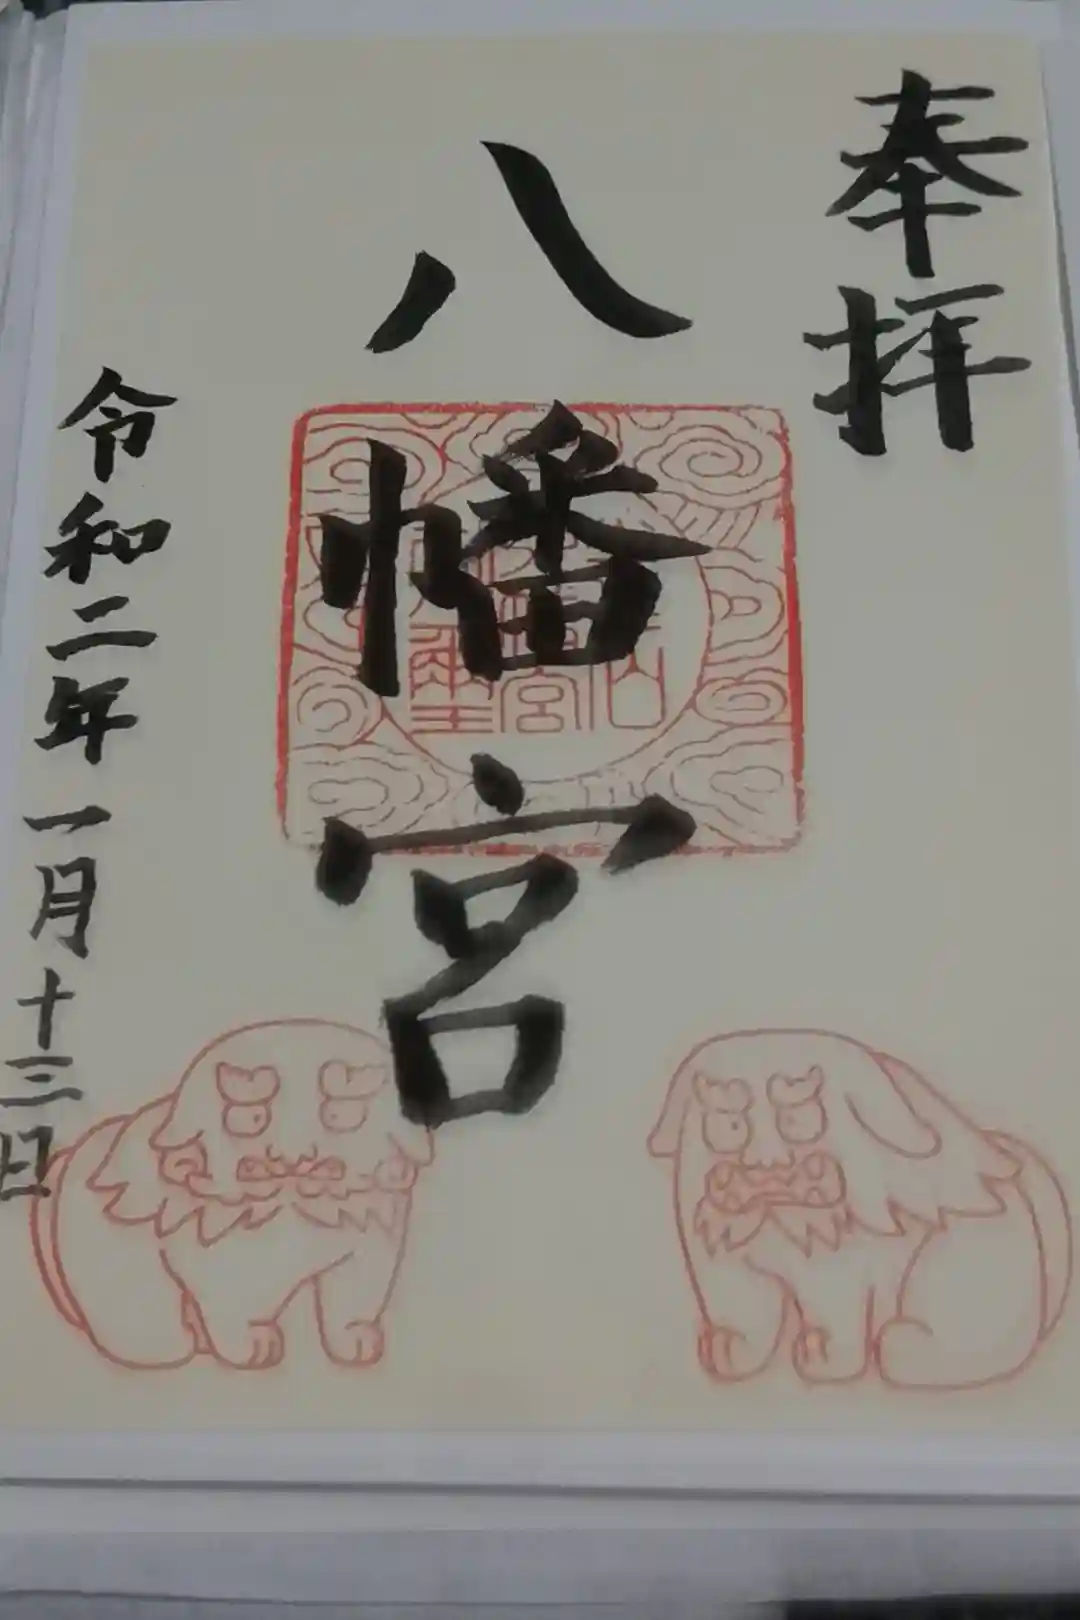 奉拝
八幡宮
令和二年一月十三日